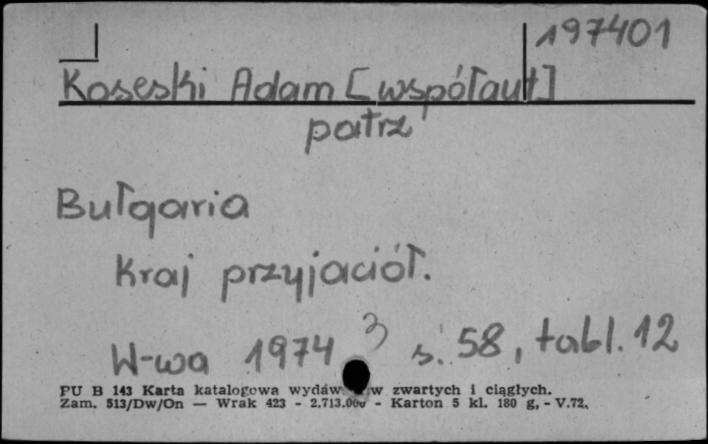 197401
Koseski Adam [współaut]
patrz
Bułgaria
Kraj przyjaciół.
W-wa 1974 3 s. 58, tabl. 12
PU B 143 Karta katalogowa wydaw w zwartych i ciągłych.
Zam. 513/Dw/On — Wrak 423 - 2.713.000 - Karton 5 kl. 180 g, - V.72.